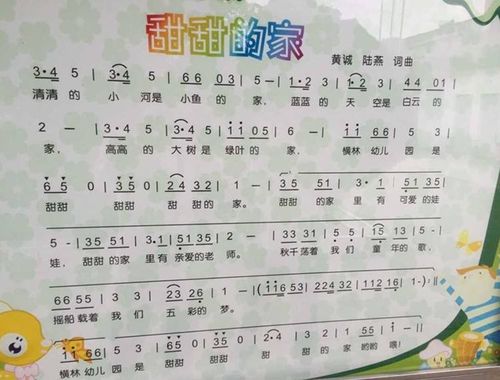 甜甜的家
黄诚 陆燕 词曲
3·4 5 | 3·4 5 | 6 6 0 3 | 5 - | 1·2 3 | 1·2 3 | 4 4 0 1 |
清清的 小河是小鱼的 家，蓝蓝的 天空是白云的
2 - | 3·4 5 | 3·4 5 | i i 0 5 | 6 - | 6 6 6 | 5 5 3 |
家，高高的 大树是 绿叶的 家，横林 幼儿园 是
6 5 0 | 3 5 0 | 2 4 3 2 | 1 - | 3 5 5 1 | 3·1 | 5 1 3 5 |
甜甜 甜甜 甜甜的家。甜甜的家 里有 可爱的娃
5 - | 3 5 5 1 | 3·1 | 5 1 3 5 | 5 - | 3 3 3 1 | 5 5 | 1 5 1 3 |
娃，甜甜的家 里有亲爱的老师。秋千荡着我们 童年的歌，
6 6 5 5 | 3 3 | 2 3 2 6 | 1 - | ( i i 6 5 3 | 2 2 4 3 2 | 1 1 2 1 6 | 1 - ) :||
摇船载着我们 五彩的梦。
i i 6 6 | 5 3 | 6 5 0 | 3 5 0 | 2 4 | 3 2 | 5 5 | i 0 ||
横林幼儿园是 甜甜 甜甜 甜甜的家哟哟 喂！